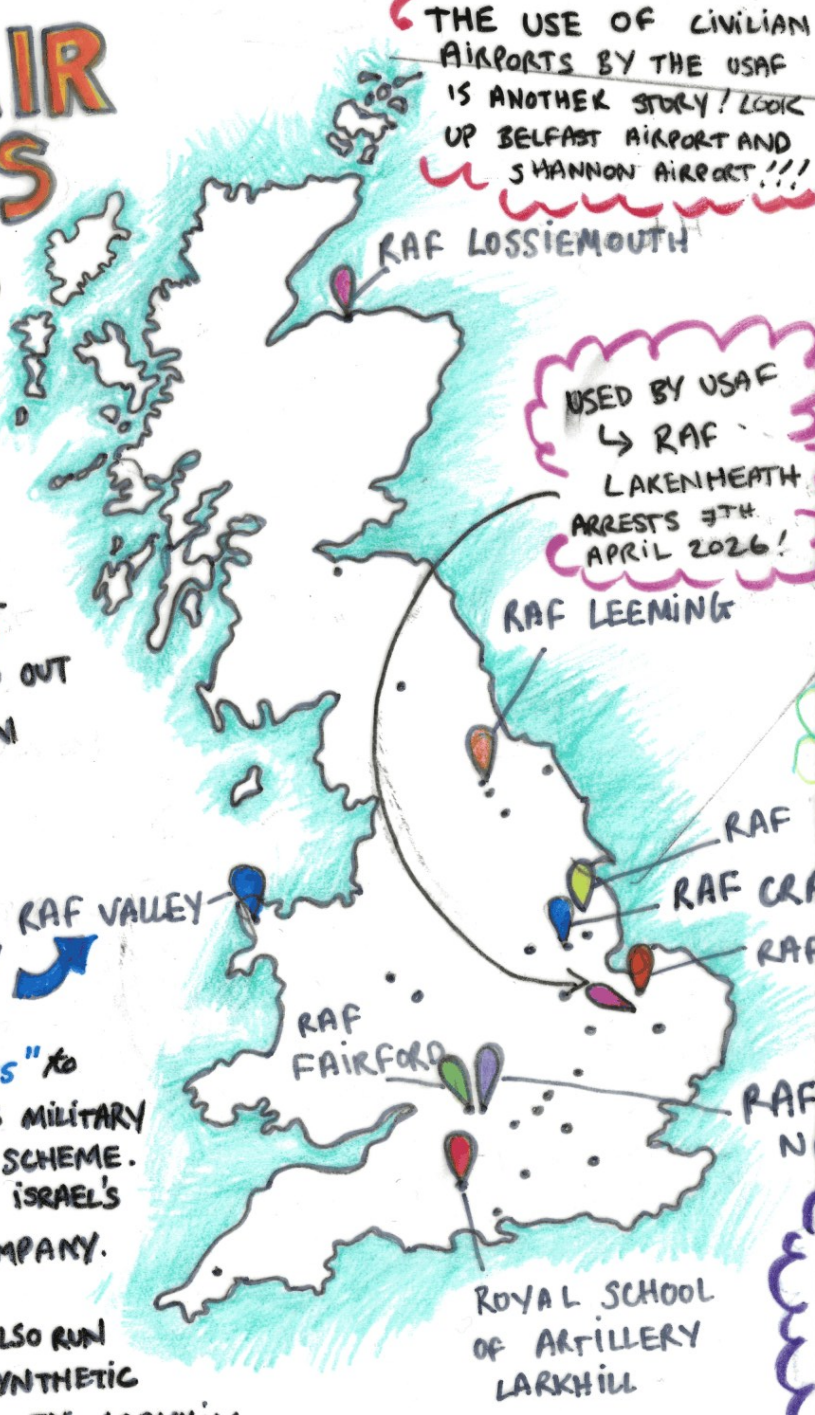 THE USE OF CIVILIAN
AIRPORTS BY THE USAF
IS ANOTHER STORY! LOOK
UP BELFAST AIRPORT AND
SHANNON AIRPORT!!!
RAF LOSSIEMOUTH
USED BY USAF
↳ RAF
LAKENHEATH
ARRESTS 7TH
APRIL 2026!
RAF LEEMING
OUT
RAF
RAF CRA
RAF
RAF VALLEY
RAF
FAIRFORD
RAF
N
s" to
MILITARY
SCHEME.
ISRAEL'S
MPANY.
ROYAL SCHOOL
OF ARTILLERY
LARKHILL
LSO RUN
YNTHETIC